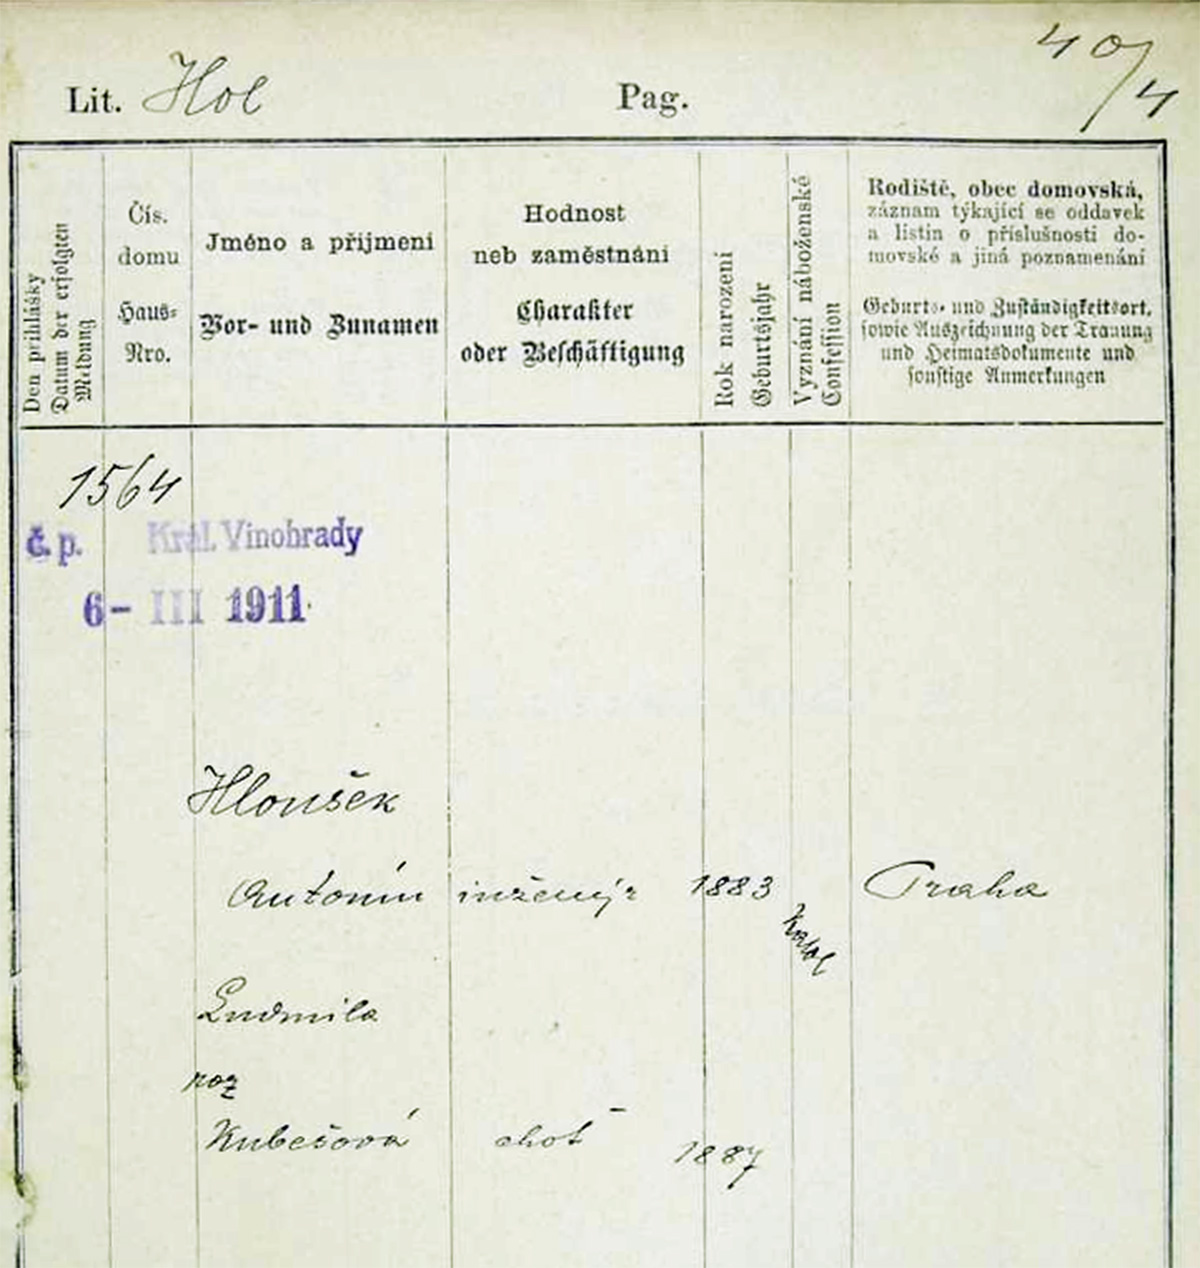 Lit. Hol Pag. 40/4
Den přihlášky
Datum der erfolgten
Meldung
Čís.
domu
Haus-
Nro.
Jméno a příjmení
Vor- und Zunamen
Hodnost
neb zaměstnání
Charakter
oder Beschäftigung
Rok narození
Geburtsjahr
Vyznání náboženské
Confession
Rodiště, obec domovská,
záznam týkající se oddavek
a listin o příslušnosti do-
movské a jiná poznamenání
Geburts- und Zuständigkeitsort,
sowie Auszeichnung der Trauung
und Heimatsdokumente und
sonstige Anmerkungen
1564
č. p. Král. Vinohrady
6 - III 1911
Hloušek
Antonín inženýr 1883 Praha
katol
Ludmila
roz
Kubešová choť 1887